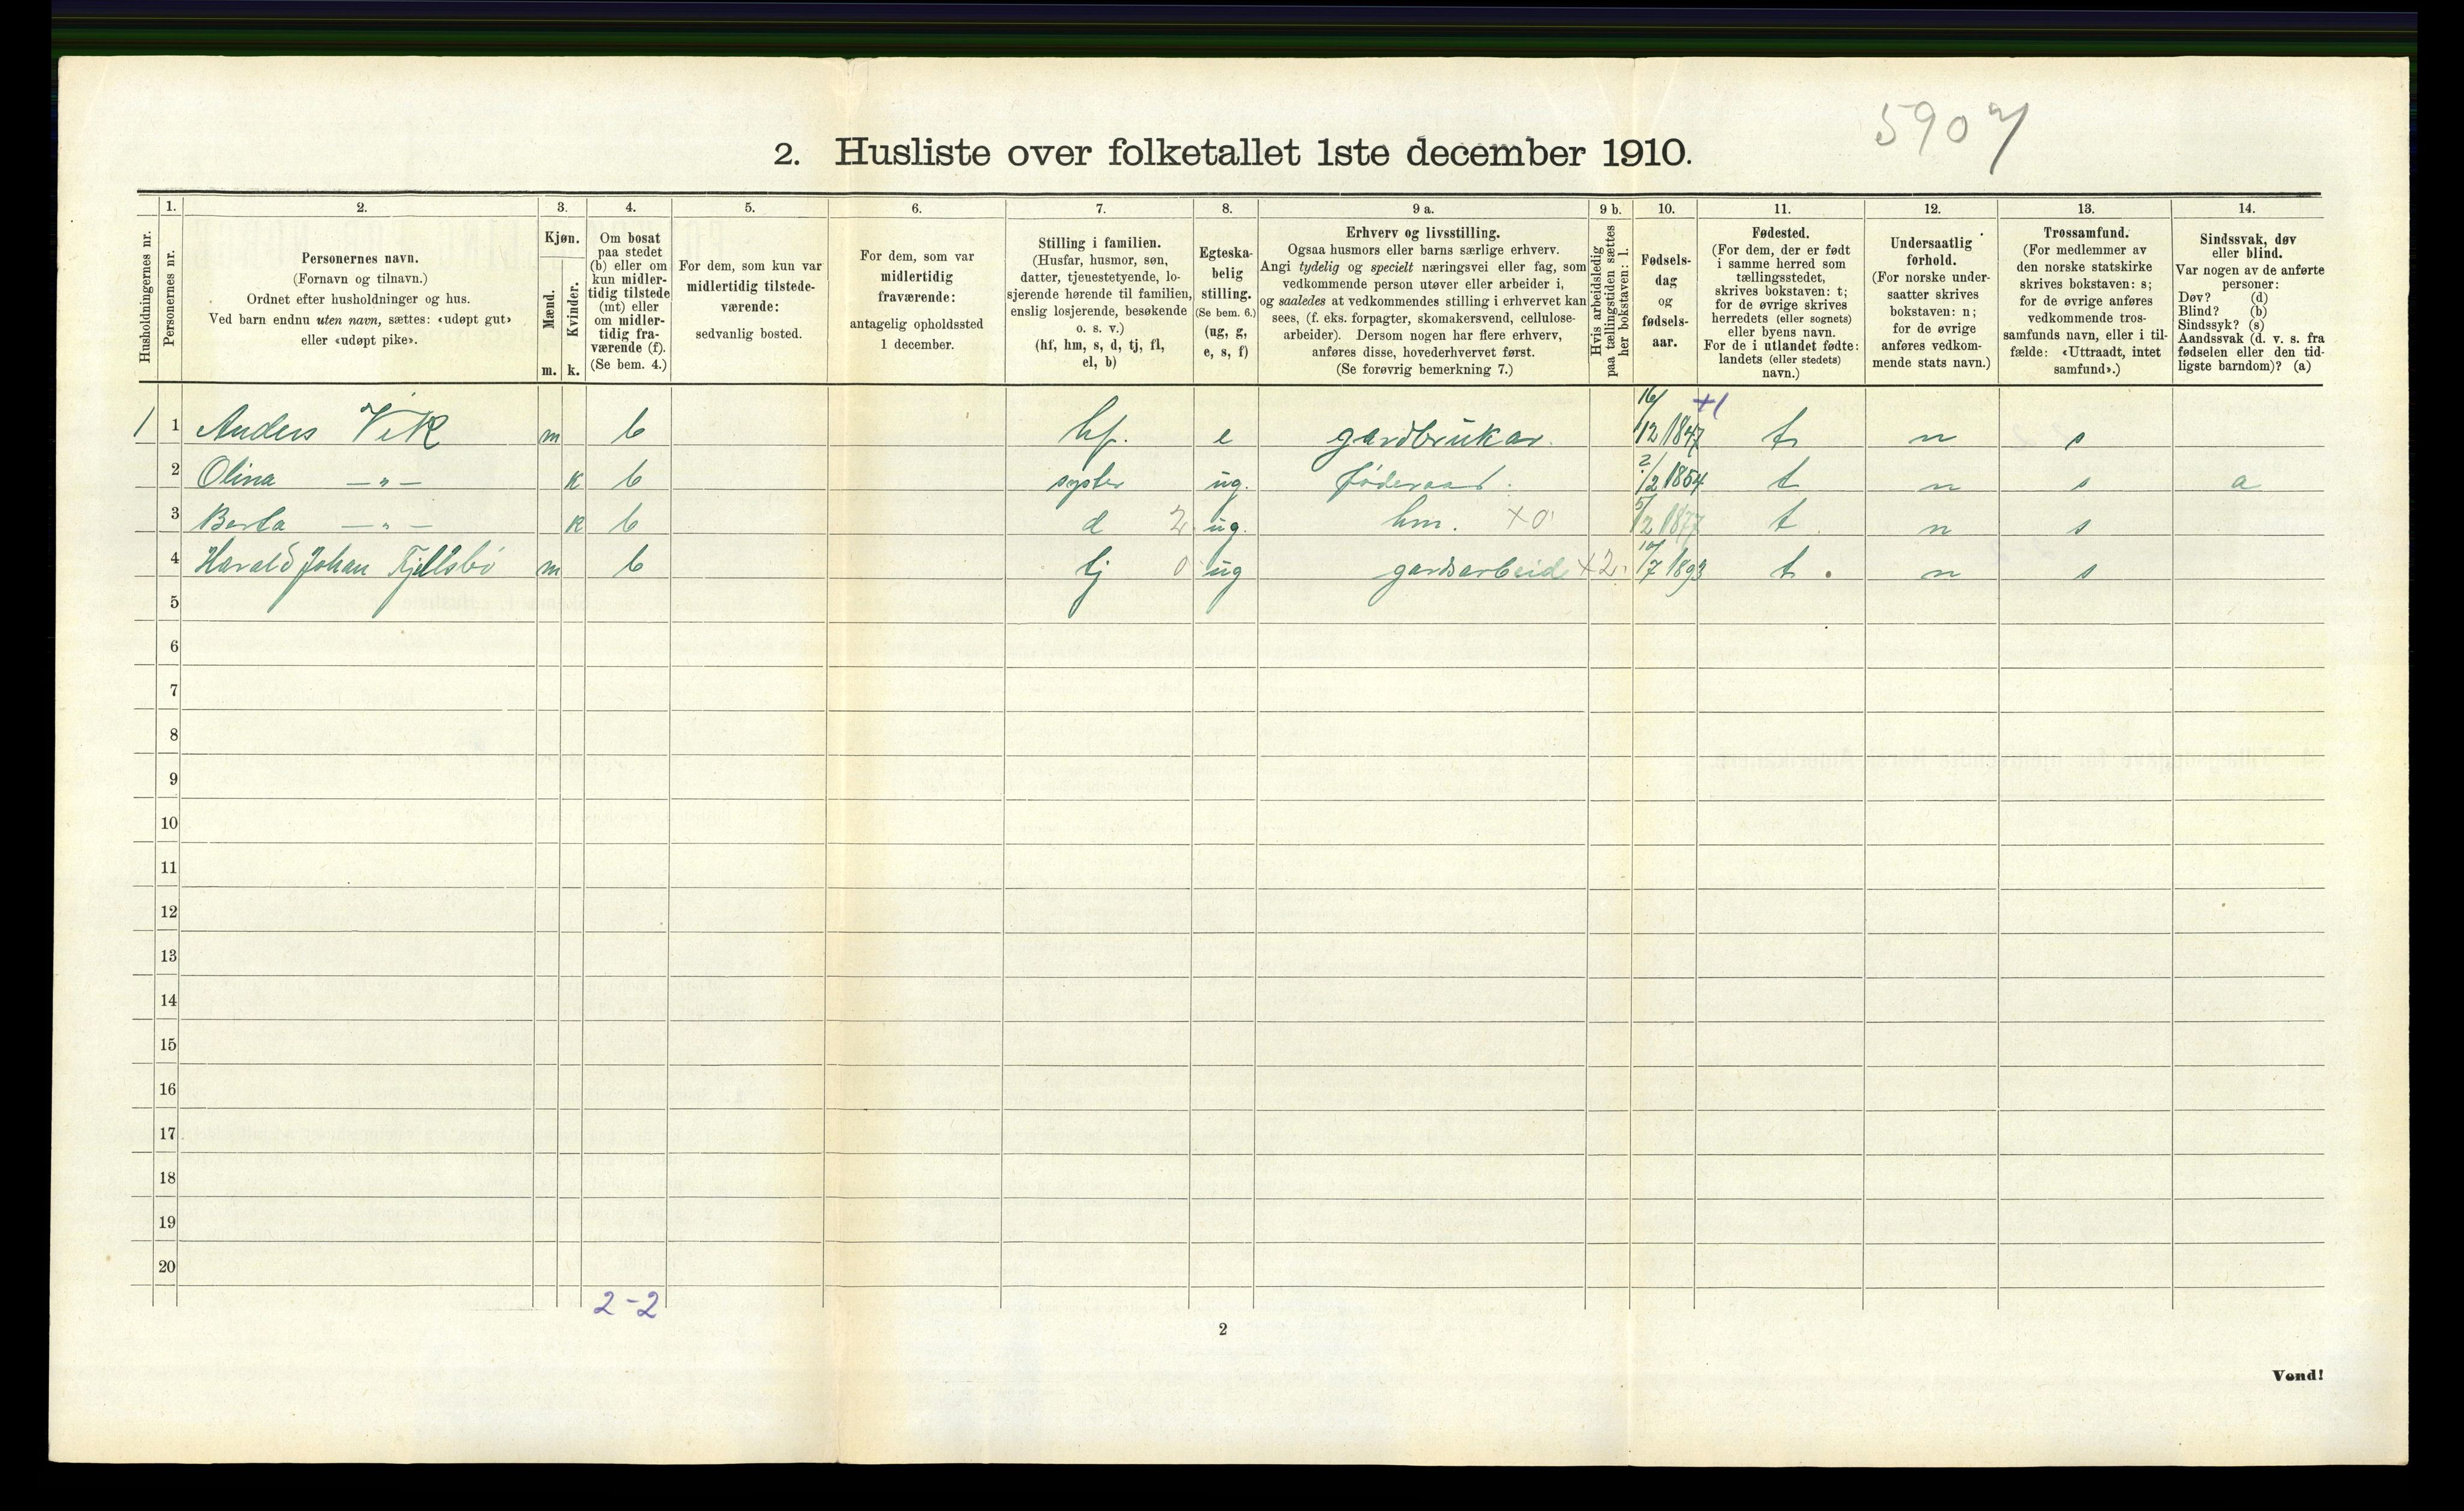 5907
2. Husliste over folketallet 1ste december 1910.
Husholdningernes nr.
1.
Personernes nr.
2.
Personernes navn.
(Fornavn og tilnavn.)
Ordnet efter husholdninger og hus.
Ved barn endnu uten navn, sættes: «udøpt gut»
eller «udøpt pike».
3.
Kjøn.
Mænd.
Kvinder.
m. k.
4.
Om bosat
paa stedet
(b) eller om
kun midler-
tidig tilstede
(mt) eller
om midler-
tidig fra-
værende (f).
(Se bem. 4.)
5.
For dem, som kun var
midlertidig tilstede-
værende:
sedvanlig bosted.
6.
For dem, som var
midlertidig
fraværende:
antagelig opholdssted
1 december.
7.
Stilling i familien.
(Husfar, husmor, søn,
datter, tjenestetyende, lo-
sjerende hørende til familien,
enslig losjerende, besøkende
o. s. v.)
(hf, hm, s, d, tj, fl,
el, b)
8.
Egteska-
belig
stilling.
(Se bem. 6.)
(ug, g,
e, s, f)
9 a.
Erhverv og livsstilling.
Ogsaa husmors eller barns særlige erhverv.
Angi tydelig og specielt næringsvei eller fag, som
vedkommende person utøver eller arbeider i,
og saaledes at vedkommendes stilling i erhvervet kan
sees, (f. eks. forpagter, skomakersvend, cellulose-
arbeider). Dersom nogen har flere erhverv,
anføres disse, hovederhvervet først.
(Se forøvrig bemerkning 7.)
9 b.
Hvis arbeidsledig
paa tællingstiden sættes
her bokstaven: l.
10.
Fødsels-
dag
og
fødsels-
aar.
11.
Fødested.
(For dem, der er født
i samme herred som
tællingsstedet,
skrives bokstaven: t;
for de øvrige skrives
herredets (eller sognets)
eller byens navn.
For de i utlandet fødte:
landets (eller stedets)
navn.)
12.
Undersaatlig
forhold.
(For norske under-
saatter skrives
bokstaven: n;
for de øvrige
anføres vedkom-
mende stats navn.)
13.
Trossamfund.
(For medlemmer av
den norske statskirke
skrives bokstaven: s;
for de øvrige anføres
vedkommende tros-
samfunds navn, eller i til-
fælde: «Uttraadt, intet
samfund».)
14.
Sindssvak, døv
eller blind.
Var nogen av de anførte
personer:
Døv? (d)
Blind? (b)
Sindssyk? (s)
Aandssvak (d. v. s. fra
fødselen eller den tid-
ligste barndom)? (a)
1 1 Anders Vik m b hf. e gardbrukar. 16/12 1847 +1 t n s
2 Olina — " — k b syster ug. føderaad. 2/2 1854 t n s a
3 Berta — " — k b d 2 ug. hm. +0 5/2 1877 t n s
4 Harald Johan Fjellsbø m b tj 0 ug gardsarbeid +2 10/7 1893 t. n s
5
6
7
8
9
10
11
12
13
14
15
16
17
18
19
20
2-2
2
Vend!